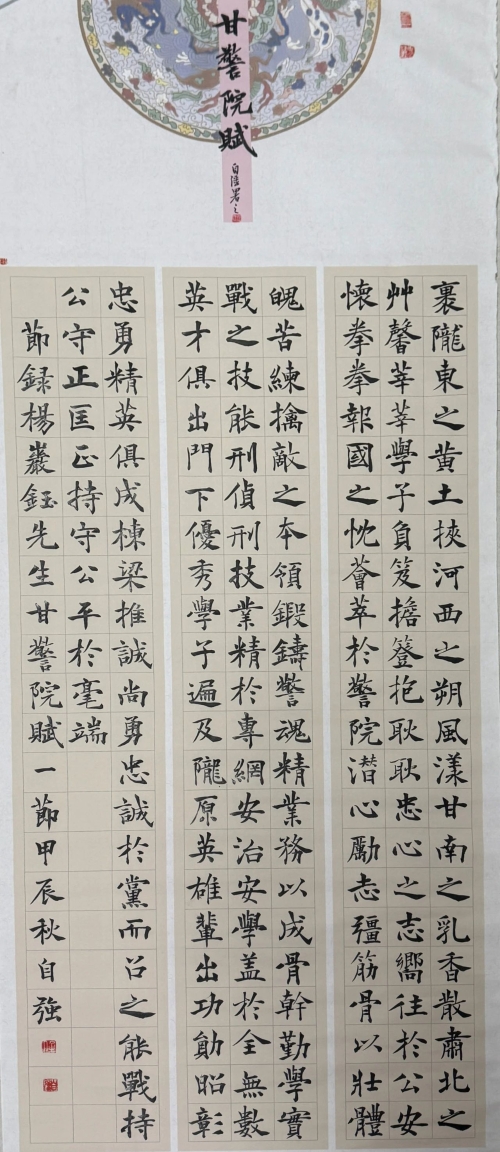 甘警院賦
自強署之
裹隴東之黄土挾河西之朔風漾甘南之乳香散肅北之
艸馨莘莘學子負笈擔簦抱耿耿忠心之志嚮往於公安
懷拳拳報國之忱薈萃於警院潛心勵志彊筋骨以壯體
魄苦練擒敵之本領鍛鑄警魂精業務以成骨幹勤學實
戰之技能刑偵刑技業精於專網安治安學蓋於全無數
英才俱出門下優秀學子遍及隴原英雄輩出功勛昭彰
忠勇精英俱成棟梁推誠尚勇忠誠於黨而召之能戰持
公守正匡正持守公平於毫端
節録楊巖鈺先生甘警院賦一節甲辰秋自強